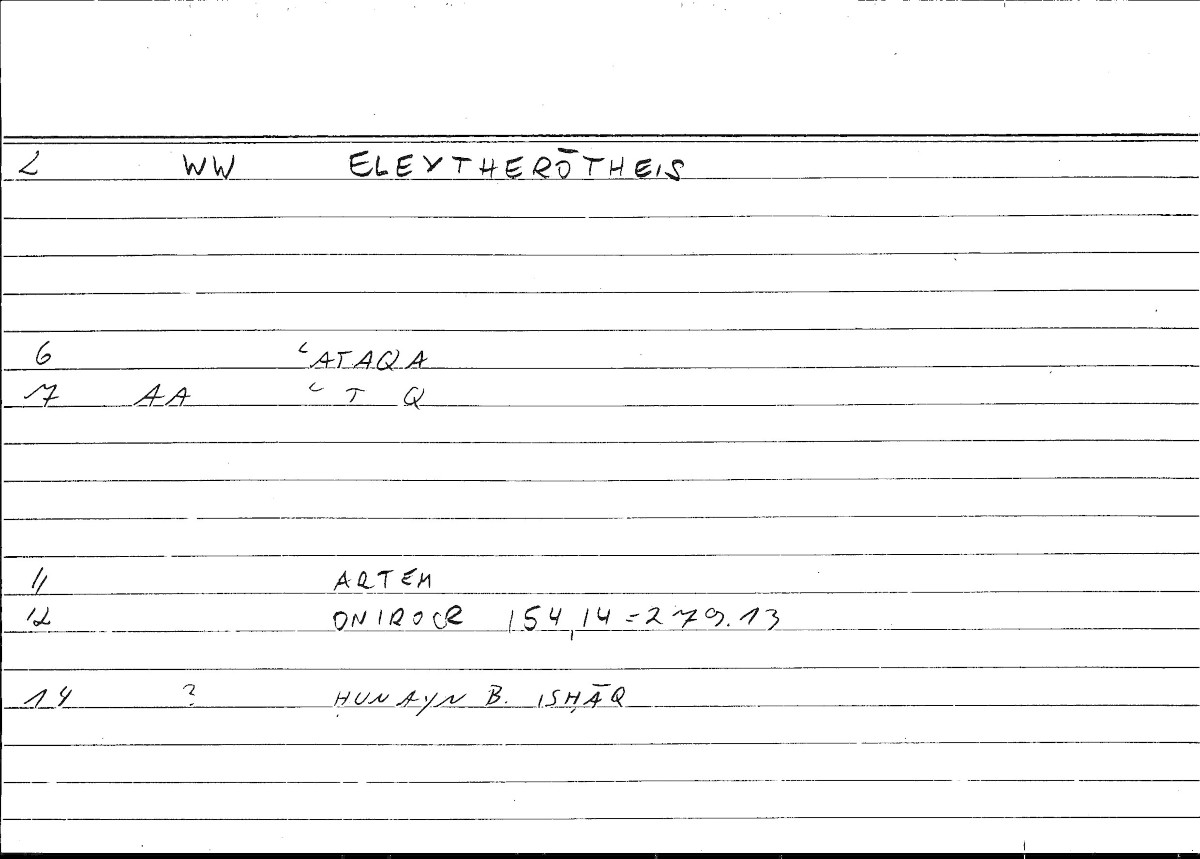 2 WW ELEYTHERŌTHEIS
6 ʿATAQA
7 AA ʿ T Q
11 ARTEM
12 ONIROCR 154,14=279.13
14 ? ḤUNAYN B. ISḤĀQ